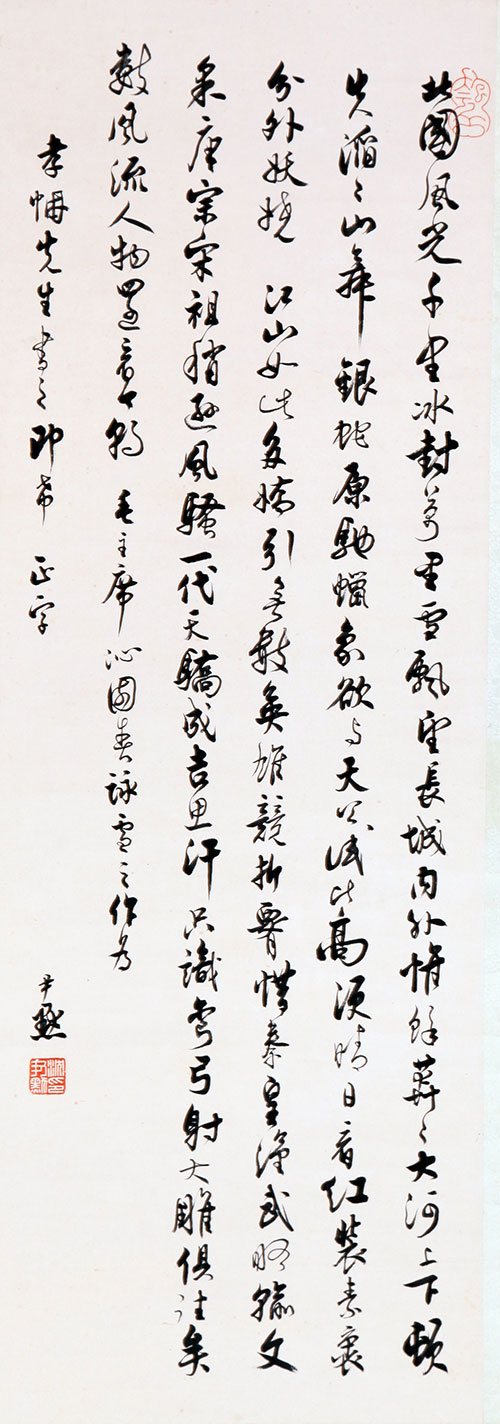 北國風光千里冰封萬里雪飄望長城内外惟餘莽〻大河上下頓
失滔〻山舞銀蛇原馳蠟象欲与天公試比高須晴日看紅裝素裹
分外妖嬈 江山如此多嬌引無數英雄競折腰惜秦皇漢武略輸文
采唐宗宋祖稍遜風騷一代天驕成吉思汗只識彎弓射大雕俱往矣
數風流人物還看今朝 毛主席沁園春詠雪之作為
孝先生書之即希 正字
尹默